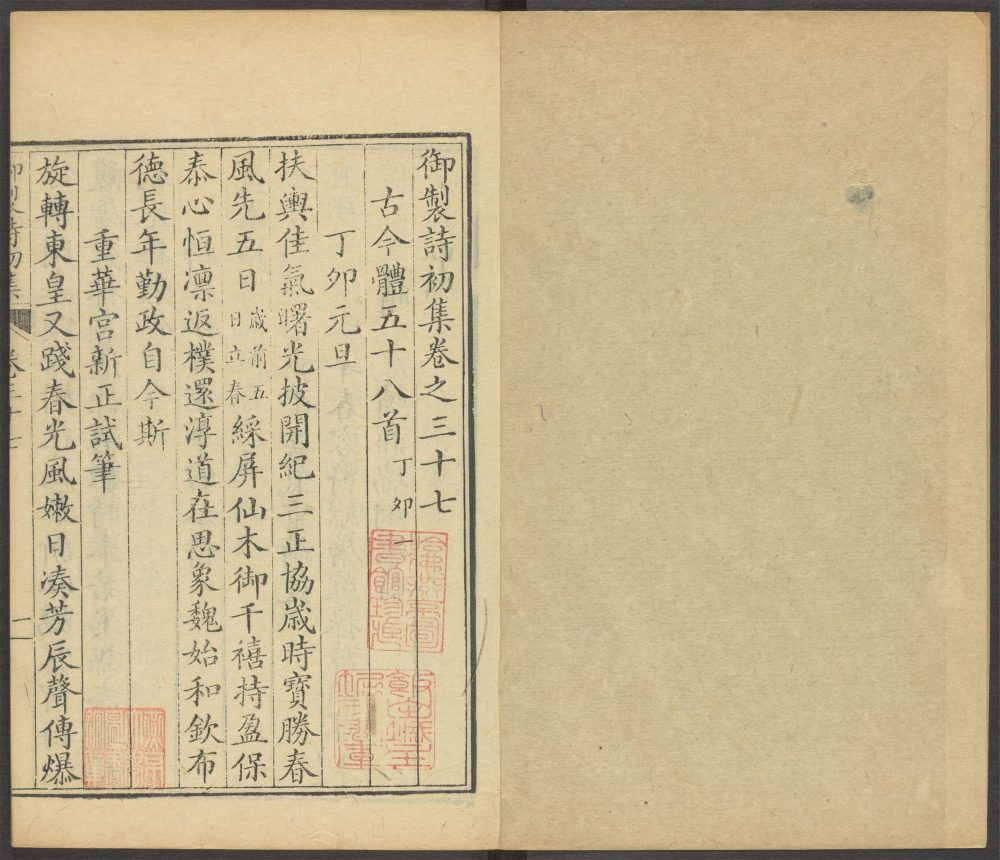 御製詩初集卷之三十七
古今體五十八首丁卯一
丁卯元旦
扶輿佳氣曙光披開紀三正協歲時寶勝春
風先五日歲前五日立春綵屏仙木御千禧持盈保
泰心恒凛返樸還淳道在思象魏始和欽布
德長年勤政自今斯
重華宮新正試筆
旋轉東皇又踐春光風嫩日湊芳辰聲傳爆
哈佛燕京圖書館珍藏